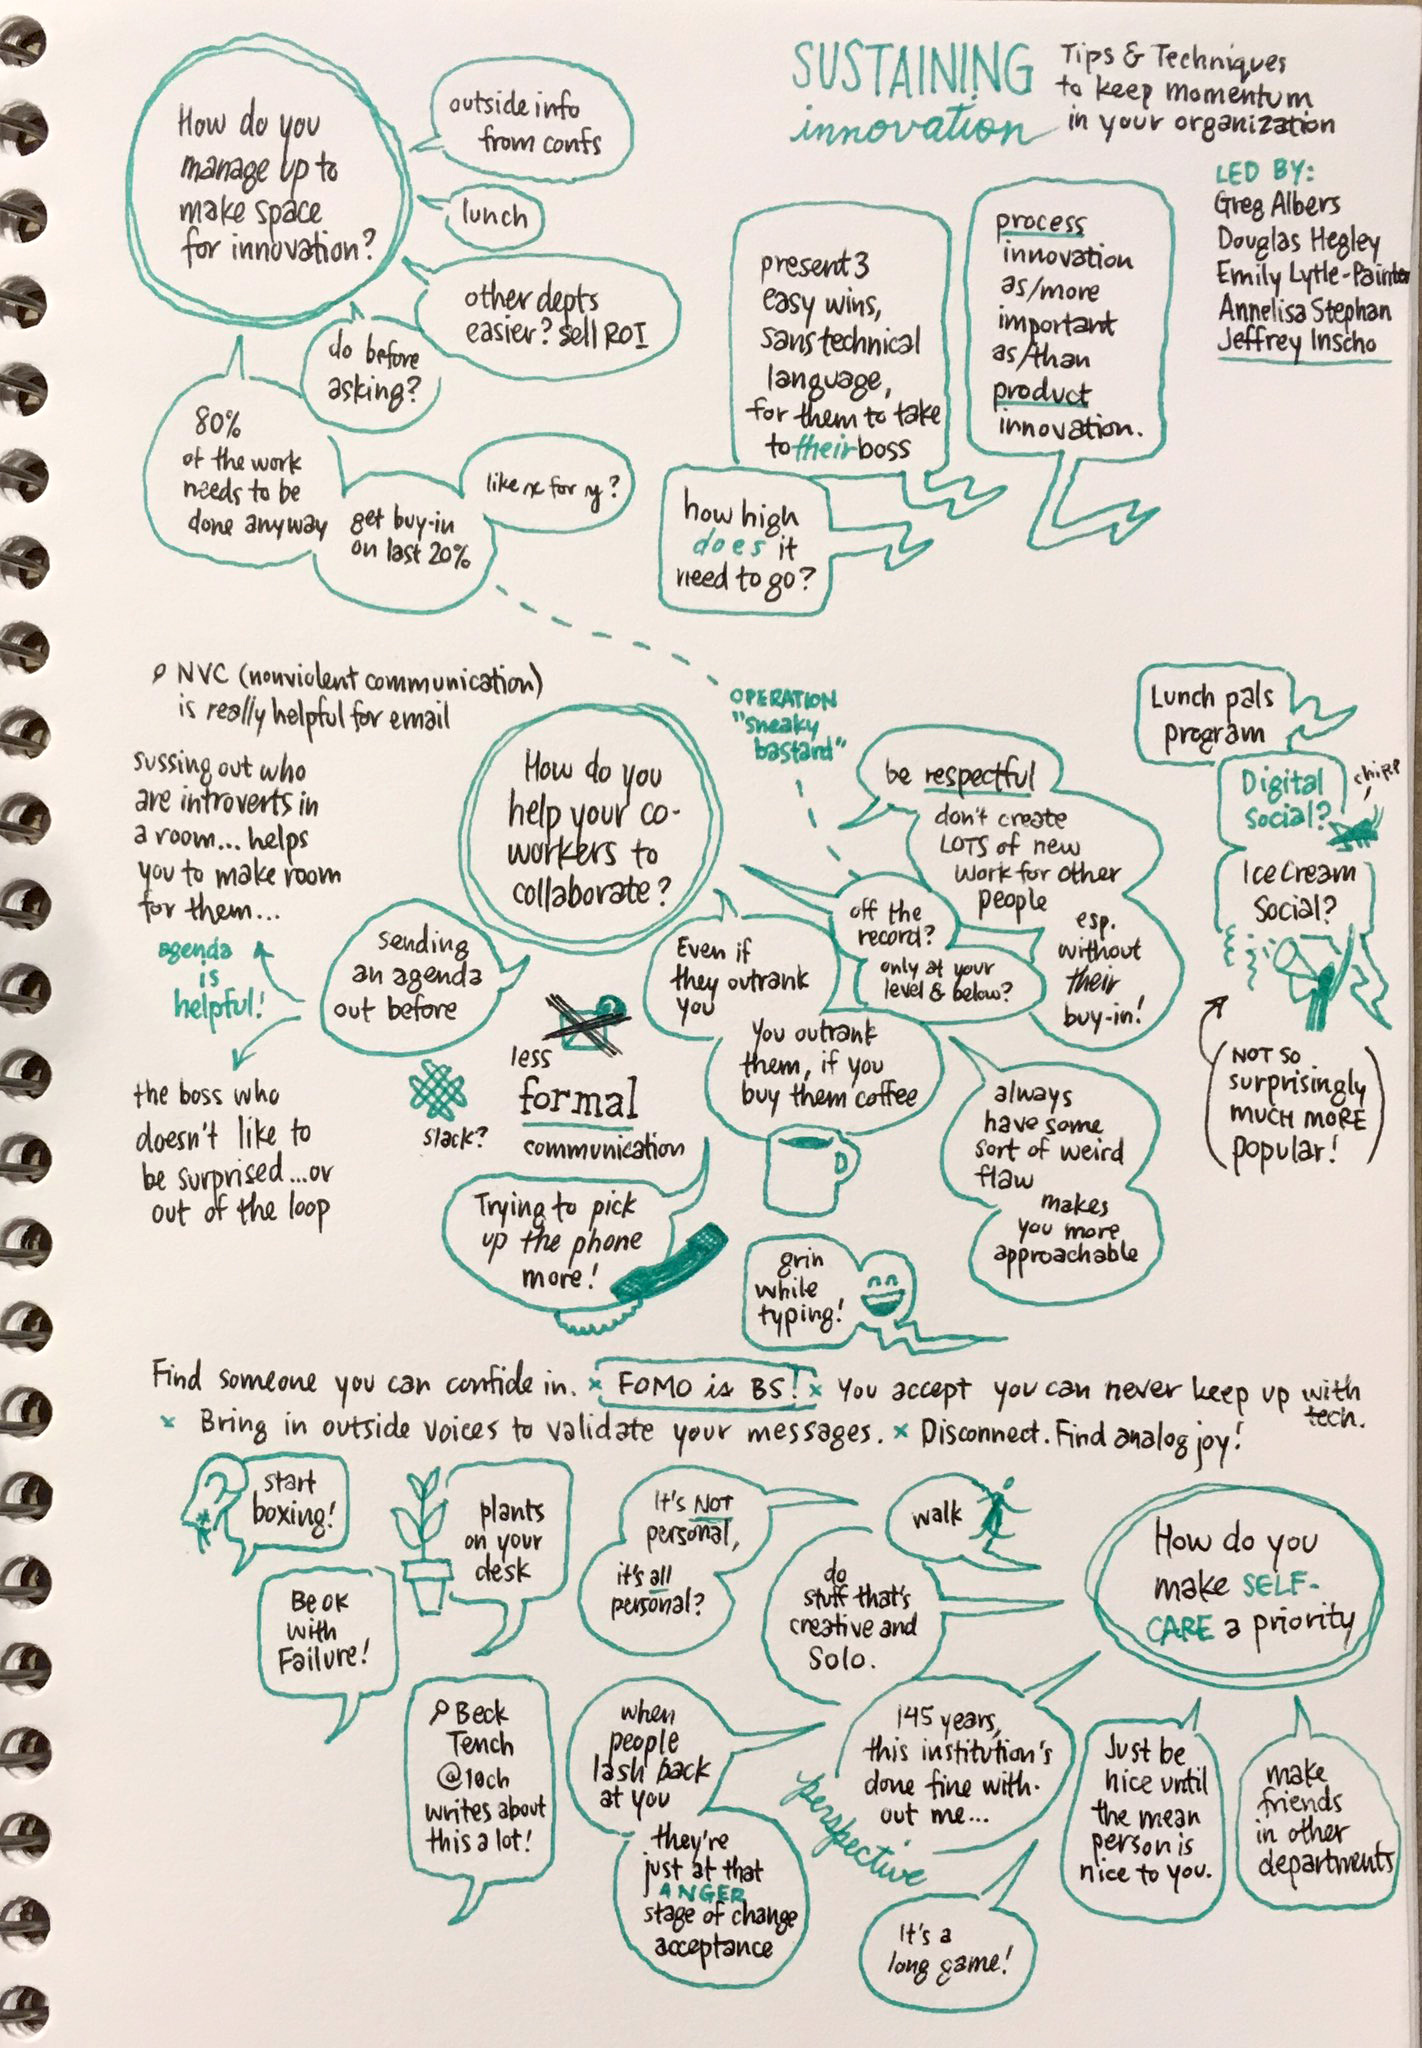 SUSTAINING
innovation
Tips & Techniques
to keep momentum
in your organization
LED BY:
Greg Albers
Douglas Hegley
Emily Lytle-Painter
Annelisa Stephan
Jeffrey Inscho
How do you
manage up to
make space
for innovation?
outside info
from confs
lunch
other depts
easier? sell ROI
do before
asking?
80%
of the work
needs to be
done anyway
get buy-in
on last 20%
like x for y?
present 3
easy wins,
sans technical
language,
for them to take
to their boss
process
innovation
as/more
important
as/than
product
innovation.
how high
does it
need to go?
OPERATION
"sneaky
bastard"
NVC (nonviolent communication)
is really helpful for email
sussing out who
are introverts in
a room... helps
you to make room
for them...
agenda
is
helpful!
the boss who
doesn't like to
be surprised...or
out of the loop
How do you
help your co-
workers to
collaborate?
sending
an agenda
out before
less
formal
communication
slack?
Trying to pick
up the phone
more!
Even if
they outrank
you
you outrank
them, if you
buy them coffee
off the
record?
only at your
level & below?
be respectful
don't create
LOTS of new
work for other
people
esp.
without
their
buy-in!
always
have some
sort of weird
flaw
makes
you more
approachable
grin
while
typing!
Lunch pals
program
Digital
Social?
chirp
Ice Cream
Social?
NOT SO
surprisingly
MUCH MORE
popular!
Find someone you can confide in. x FOMO is BS! x You accept you can never keep up with
tech.
x Bring in outside voices to validate your messages. x Disconnect. Find analog joy!
start
boxing!
plants
on your
desk
Be OK
with
Failure!
It's NOT
personal,
it's all
personal?
walk
do
stuff that's
creative and
Solo.
How do you
make SELF-
CARE a priority
Beck
Tench
@10ch
writes about
this a lot!
when
people
lash back
at you
they're
just at that
ANGER
stage of change
acceptance
145 years,
this institution's
done fine with-
out me...
perspective
It's a
long game!
Just be
nice until
the mean
person is
nice to you.
make
friends
in other
departments